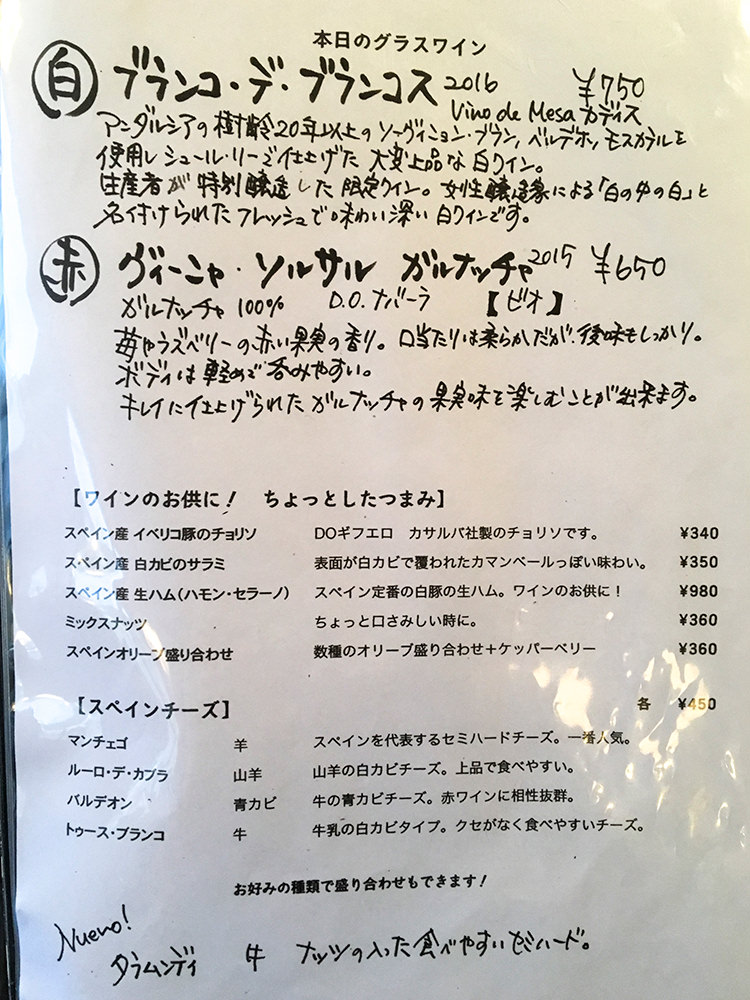 本日のグラスワイン
白 ブランコ・デ・ブランコス 2016 ¥750
Vino de Mesa カディス
アンダルシアの樹齢20年以上のソーヴィニョン・ブラン, ベルデホ, モスカテルを
使用しシュール・リーで仕上げた 大変上品な白ワイン。
生産者が特別醸造した限定ワイン。女性醸造家による「白の中の白」と
名付けられたフレッシュで味わい深い白ワインです。
赤 ヴィーニャ・ソルサル ガルナッチャ 2015 ¥650
ガルナッチャ 100% D.O.ナバーラ 【ビオ】
苺やラズベリーの赤い果実の香り。口当たりは柔らかだが、後味もしっかり。
ボディは軽めで呑みやすい。
キレイに仕上げられたガルナッチャの果実味を楽しむことが出来ます。
【ワインのお供に! ちょっとしたつまみ】
スペイン産 イベリコ豚のチョリソ DOギフエロ カサルバ社製のチョリソです。 ¥340
スペイン産 白カビのサラミ 表面が白カビで覆われたカマンベールっぽい味わい。 ¥350
スペイン産 生ハム(ハモン・セラーノ) スペイン定番の白豚の生ハム。ワインのお供に! ¥980
ミックスナッツ ちょっと口さみしい時に。 ¥360
スペインオリーブ盛り合わせ 数種のオリーブ盛り合わせ+ケッパーベリー ¥360
【スペインチーズ】 各 ¥450
マンチェゴ 羊 スペインを代表するセミハードチーズ。一番人気。
ルーロ・デ・カブラ 山羊 山羊の白カビチーズ。上品で食べやすい。
バルデオン 青カビ 牛の青カビチーズ。赤ワインに相性抜群。
トゥース・ブランコ 牛 牛乳の白カビタイプ。クセがなく食べやすいチーズ。
お好みの種類で盛り合わせもできます!
Nuevo!
タラムンディ 牛 ナッツの入った食べやすいセミハード。